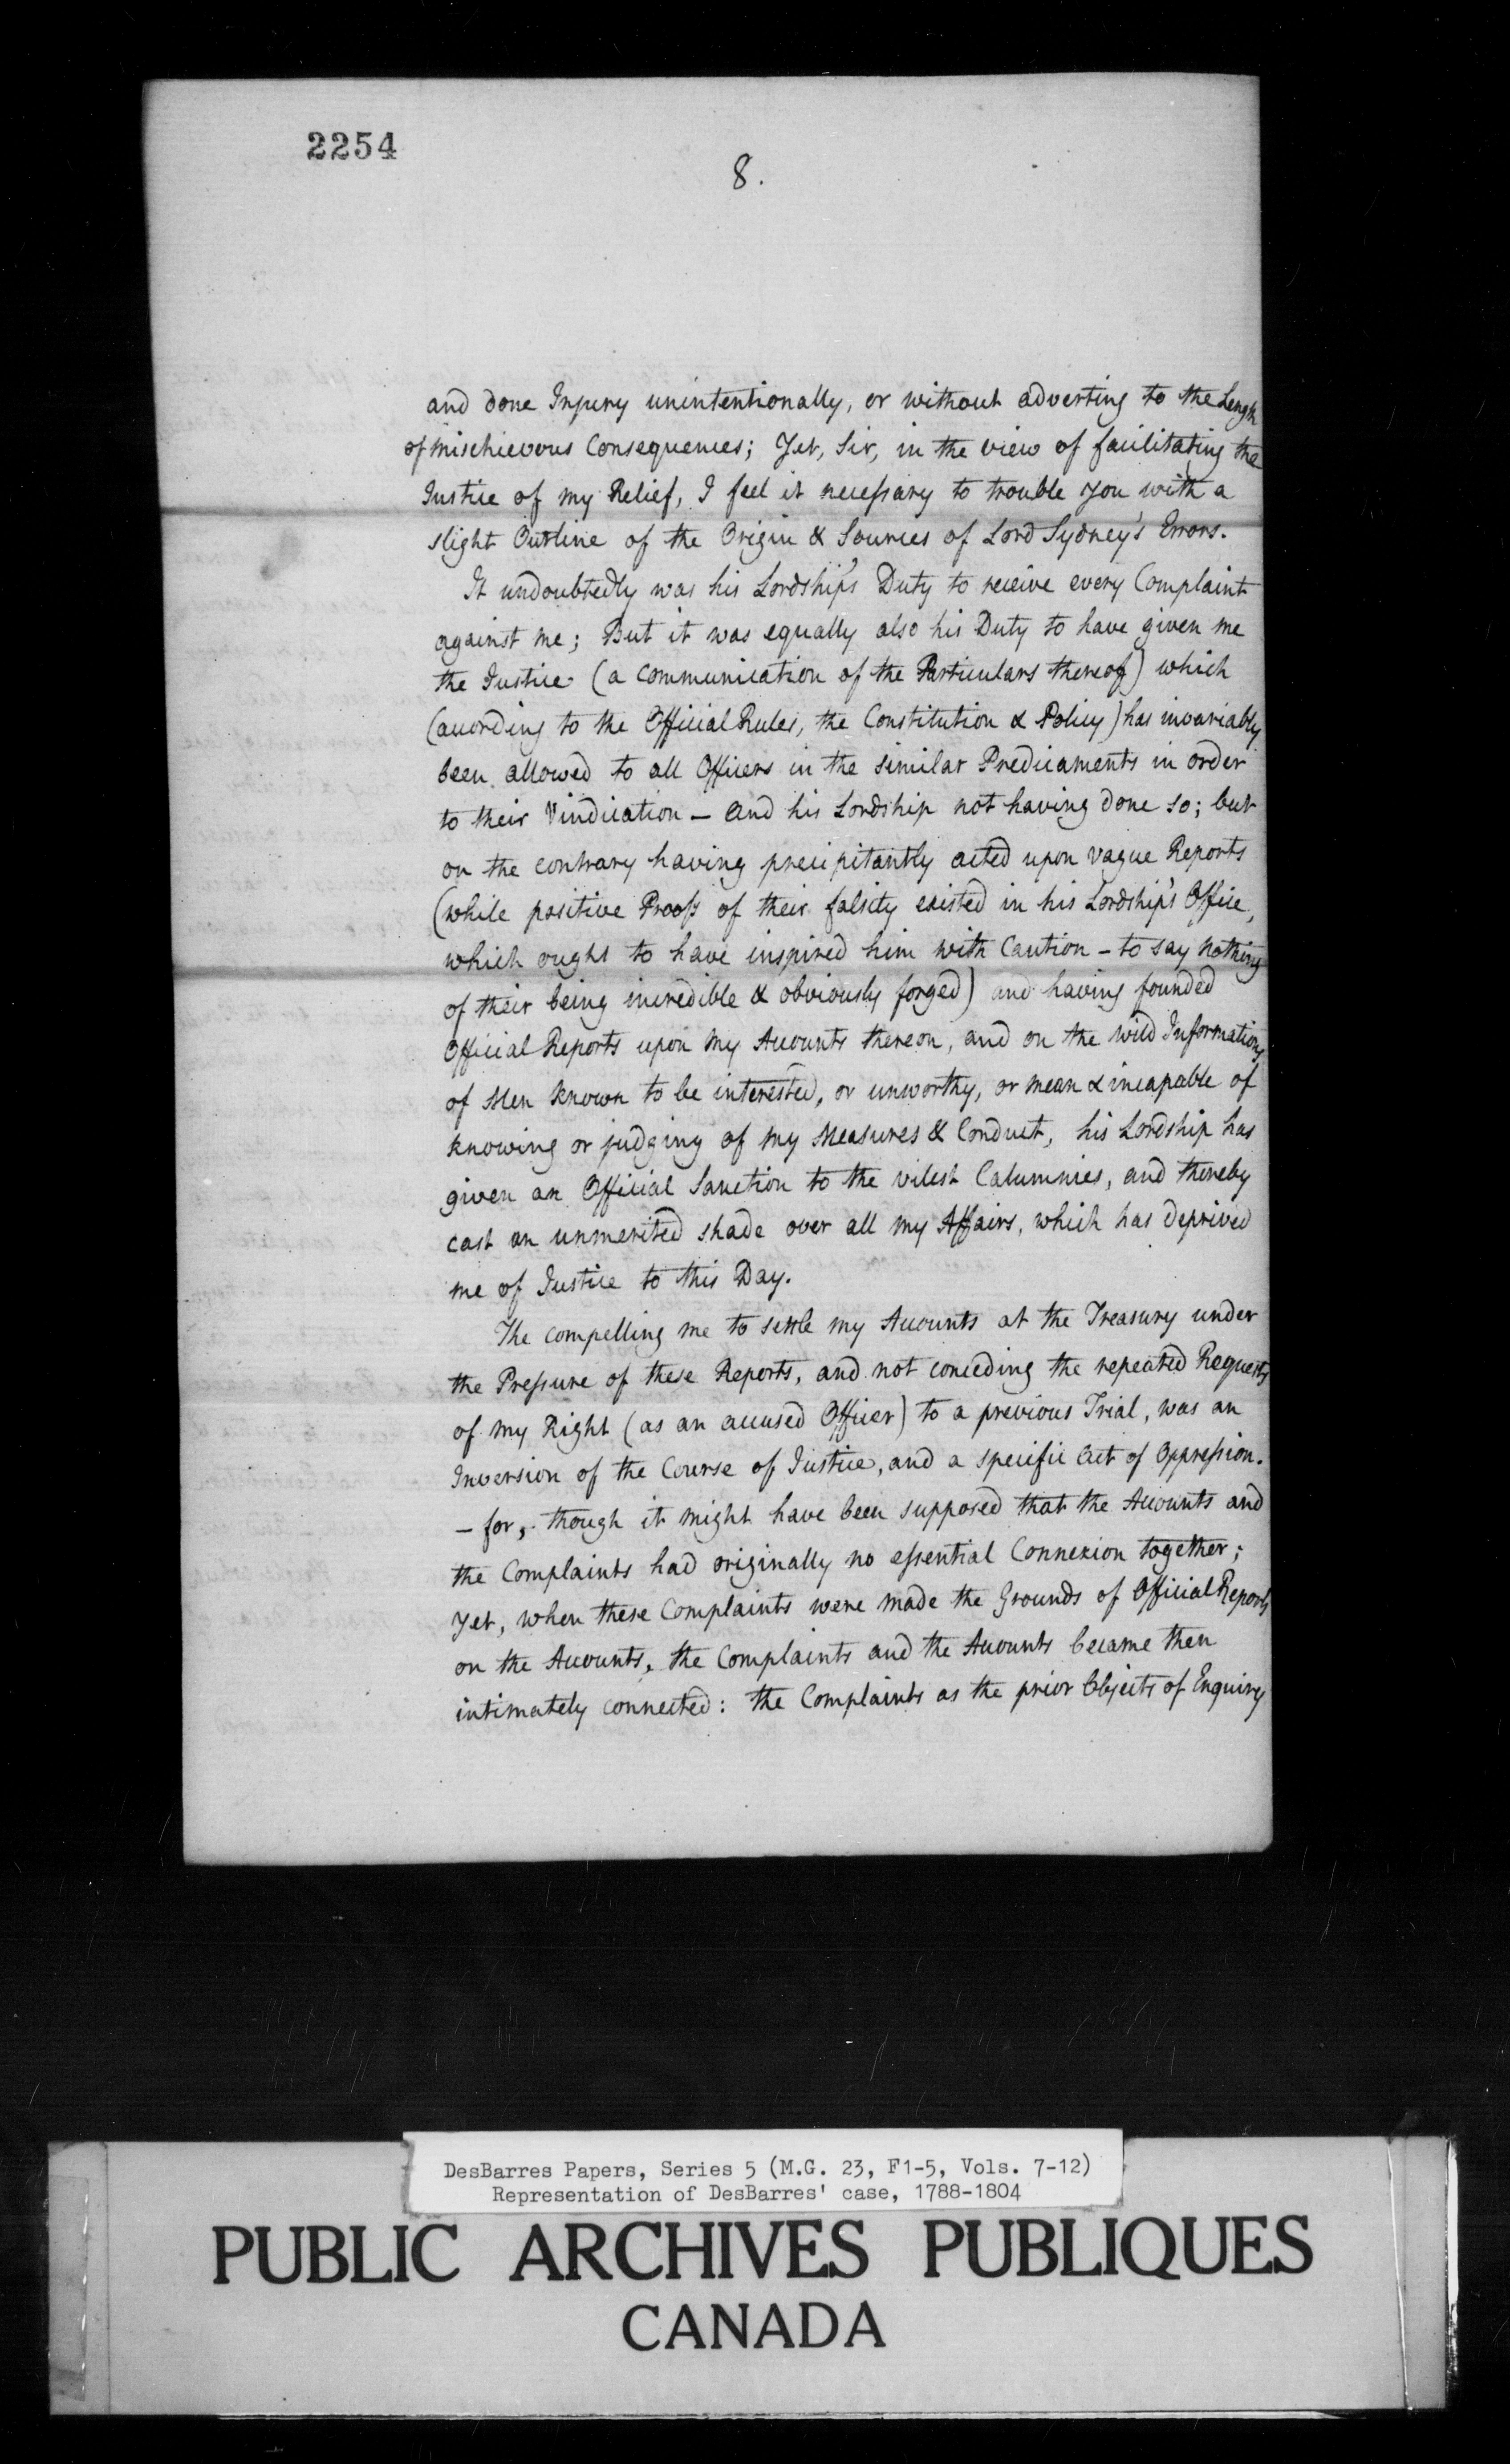 2254
8.
and done Injury unintentionally, or without adverting to the Length
of mischievous Consequences; Yet, Sir, in the view of facilitating the
Justice of my Relief, I feel it necessary to trouble you with a
slight Outline of the Origin & Sources of Lord Sydney's Errors.
It undoubtedly was his Lordship's Duty to receive every Complaint
against me; But it was equally also his Duty to have given me
the Justice (a communication of the Particulars thereof) which
(according to the Official Rules, the Constitution & Policy) has invariably
been allowed to all Officers in the similar Predicaments in order
to their Vindication — and his Lordship not having done so; but
on the contrary having precipitantly acted upon vague Reports
(while positive Proofs of their falsity existed in his Lordship's Office,
which ought to have inspired him with Caution — to say nothing
of their being incredible & obviously forged) and having founded
Official Reports upon my Accounts thereon, and on the wild Informations
of Men known to be interested, or unworthy, or mean & incapable of
knowing or judging of my Measures & Conduct, his Lordship has
given an Official Sanction to the vilest Calumnies, and thereby
cast an unmerited shade over all my Affairs, which has deprived
me of Justice to this Day.
The compelling me to settle my Accounts at the Treasury under
the Pressure of these Reports, and not conceding the repeated Requests
of my Right (as an accused Officer) to a previous Trial, was an
Inversion of the Course of Justice, and a specific Act of Oppression.
— for, though it might have been supposed that the Accounts and
the Complaints had originally no essential Connexion together;
Yet, when these Complaints were made the Grounds of Official Reports
on the Accounts, the Complaints and the Accounts became then
intimately connected: the Complaints as the prior Objects of Enquiry
DesBarres Papers, Series 5 (M.G. 23, F1-5, Vols. 7-12)
Representation of DesBarres' case, 1788-1804
PUBLIC ARCHIVES PUBLIQUES
CANADA